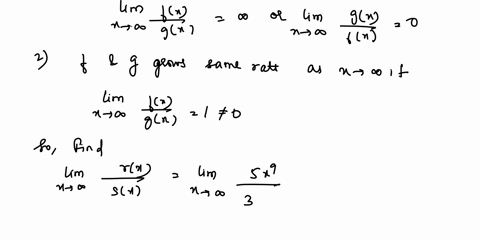 lim x→∞ f(x)/g(x) = ∞ or lim x→∞ g(x)/f(x) = 0
2) f & g grows same rate as x→∞, if
lim x→∞ f(x)/g(x) = L ≠ 0
So, find
lim x→∞ r(x)/s(x) = lim x→∞ 5x⁹/3